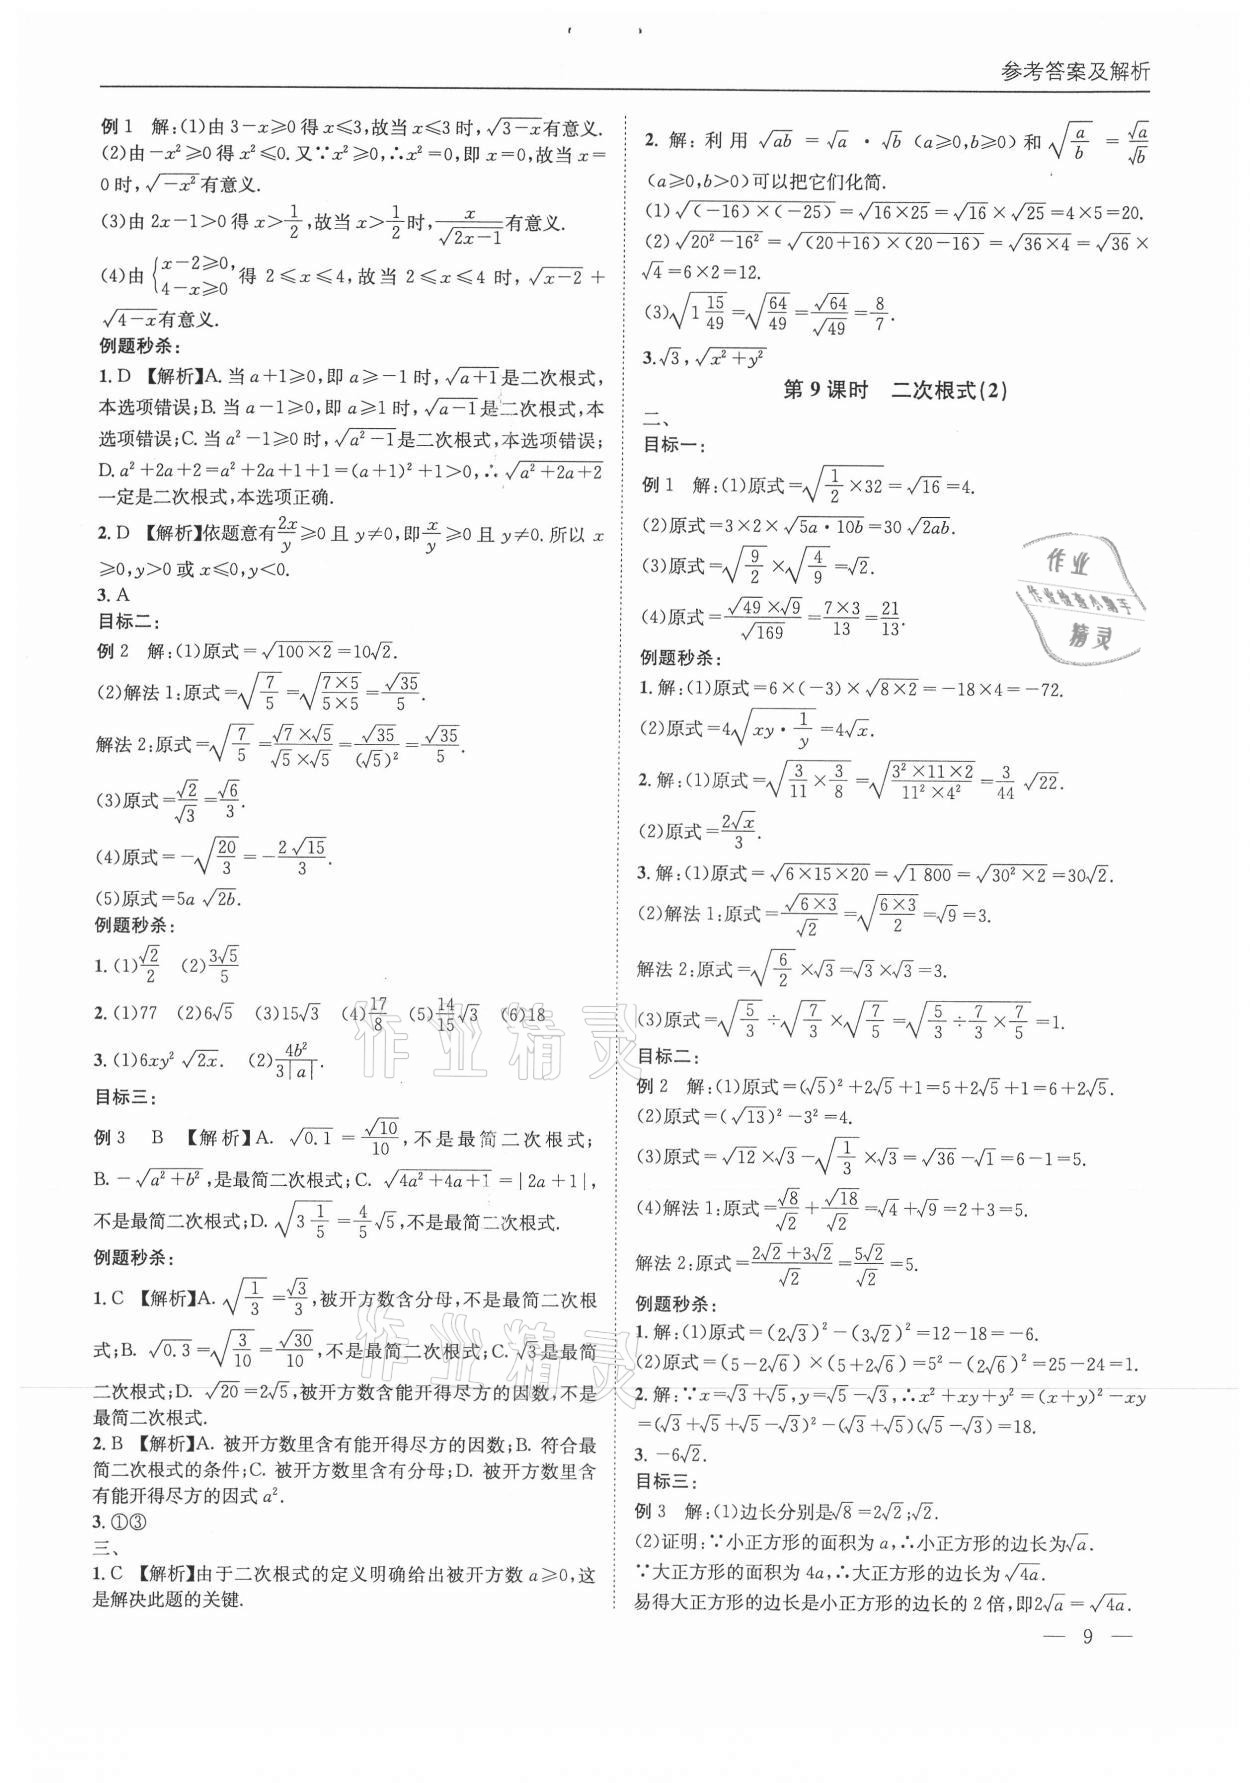 参考答案及解析
例1 解:(1)由 3−x≥0 得 x≤3,故当 x≤3 时,√(3−x)有意义.
(2)由−x²≥0 得 x²≤0.又∵x²≥0,∴x²=0,即 x=0,故当 x=
0 时,√(−x²)有意义.
(3)由 2x−1>0 得 x>1/2,故当 x>1/2时,x/√(2x−1)有意义.
(4)由{x−2≥0,4−x≥0 得 2≤x≤4,故当 2≤x≤4 时,√(x−2)+
√(4−x)有意义.
例题秒杀:
1.D 【解析】A.当 a+1≥0,即 a≥−1 时,√(a+1)是二次根式,
本选项错误;B.当 a−1≥0,即 a≥1 时,√(a−1)是二次根式,本
选项错误;C.当 a²−1≥0 时,√(a²−1)是二次根式,本选项错误;
D.a²+2a+2=a²+2a+1+1=(a+1)²+1>0,∴√(a²+2a+2)
一定是二次根式,本选项正确.
2.D 【解析】依题意有2x/y≥0 且 y≠0,即x/y≥0 且 y≠0.所以 x
≥0,y>0 或 x≤0,y<0.
3.A
目标二:
例2 解:(1)原式=√(100×2)=10√2.
(2)解法 1:原式=√(7/5)=√((7×5)/(5×5))=√35/5.
解法 2:原式=√(7/5)=(√7×√5)/(√5×√5)=√35/(√5)²=√35/5.
(3)原式=√2/√3=√6/3.
(4)原式=−√(20/3)=−2√15/3.
(5)原式=5a√(2b).
例题秒杀:
1.(1)√2/2 (2)3√5/5
2.(1)77 (2)6√5 (3)15√3 (4)17/8 (5)14/15√3 (6)18
3.(1)6xy²√(2x). (2)4b²/(3|a|).
目标三:
例3 B 【解析】A. √0.1=√10/10,不是最简二次根式;
B.−√(a²+b²),是最简二次根式;C. √(4a²+4a+1)=|2a+1|,
不是最简二次根式;D.√(3 1/5)=4/5√5,不是最简二次根式.
例题秒杀:
1.C 【解析】A.√(1/3)=√3/3,被开方数含分母,不是最简二次根
式;B. √0.3=√(3/10)=√30/10,不是最简二次根式;C.√3是最简
二次根式;D. √20=2√5,被开方数含能开得尽方的因数,不是
最简二次根式.
2.B 【解析】A. 被开方数里含有能开得尽方的因数;B. 符合最
简二次根式的条件;C. 被开方数里含有分母;D. 被开方数里含
有能开得尽方的因式 a².
3.①③
三、
1.C 【解析】由于二次根式的定义明确给出被开方数 a≥0,这
是解决此题的关键.
2. 解:利用 √(ab)=√a·√b (a≥0,b≥0)和 √(a/b)=√a/√b
(a≥0,b>0)可以把它们化简.
(1)√((−16)×(−25))=√(16×25)=√16×√25=4×5=20.
(2)√(20²−16²)=√((20+16)×(20−16))=√(36×4)=√36×
√4=6×2=12.
(3)√(1 15/49)=√(64/49)=√64/√49=8/7.
3.√3,√(x²+y²)
第 9 课时 二次根式(2)
二、
目标一:
例1 解:(1)原式=√(1/2×32)=√16=4.
(2)原式=3×2×√(5a·10b)=30√(2ab).
(3)原式=√(9/2)×√(4/9)=√2.
(4)原式=(√49×√9)/√169=(7×3)/13=21/13.
例题秒杀:
1.解:(1)原式=6×(−3)×√(8×2)=−18×4=−72.
(2)原式=4√(xy·1/y)=4√x.
2.解:(1)原式=√(3/11×3/8)=√((3²×11×2)/(11²×4²))=3/44√22.
(2)原式=2√x/3.
3.解:(1)原式=√(6×15×20)=√1 800=√(30²×2)=30√2.
(2)解法 1:原式=√(6×3)/√2=√((6×3)/2)=√9=3.
解法 2:原式=√(6/2)×√3=√3×√3=3.
(3)原式=√(5/3)÷√(7/3)×√(7/5)=√(5/3÷7/3×7/5)=1.
目标二:
例2 解:(1)原式=(√5)²+2√5+1=5+2√5+1=6+2√5.
(2)原式=(√13)²−3²=4.
(3)原式=√12×√3−√(1/3)×√3=√36−√1=6−1=5.
(4)解法 1:原式=√8/√2+√18/√2=√4+√9=2+3=5.
解法 2:原式=(2√2+3√2)/√2=5√2/√2=5.
例题秒杀:
1.解:(1)原式=(2√3)²−(3√2)²=12−18=−6.
(2)原式=(5−2√6)×(5+2√6)=5²−(2√6)²=25−24=1.
2.解:∵x=√3+√5,y=√5−√3,∴x²+xy+y²=(x+y)²−xy
=(√3+√5+√5−√3)²−(√3+√5)(√5−√3)=18.
3.−6√2.
目标三:
例3 解:(1)边长分别是√8=2√2;√2.
(2)证明:∵小正方形的面积为 a,∴小正方形的边长为√a.
∵大正方形的面积为 4a,∴大正方形的边长为√(4a).
易得大正方形的边长是小正方形的边长的 2 倍,即2√a=√(4a).
— 9 —
作业
作业检查小帮手
精灵
作业精灵
作业精灵